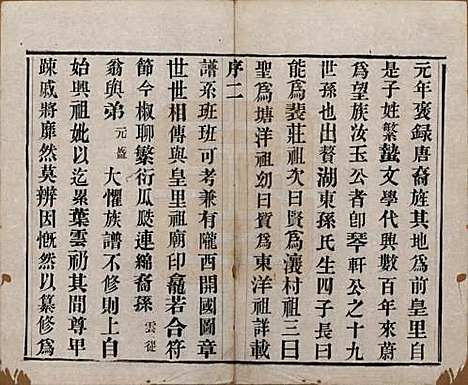 元年褒録唐裔旌其地為前皇里自
是子姓繁蟄文學代興數百年來蔚
為望族汝玉公者卽琴軒公之十九
世孫也出贅湖東孫氏生四子長曰
能為裴莊祖次曰賢為瀼村祖三曰
聖為塘洋祖幼曰質為東洋祖詳載
序二
譜系班班可考兼有隴西開國圖章
世世相傳與皇里祖廟印龕若合符
節今椒聊繁衍瓜瓞連綿裔孫雲從
翁與弟元益大懼族譜不修則上自
始興祖妣以迄累葉雲礽其間尊卑
踈戚將靡然莫辨因慨然以纂修為